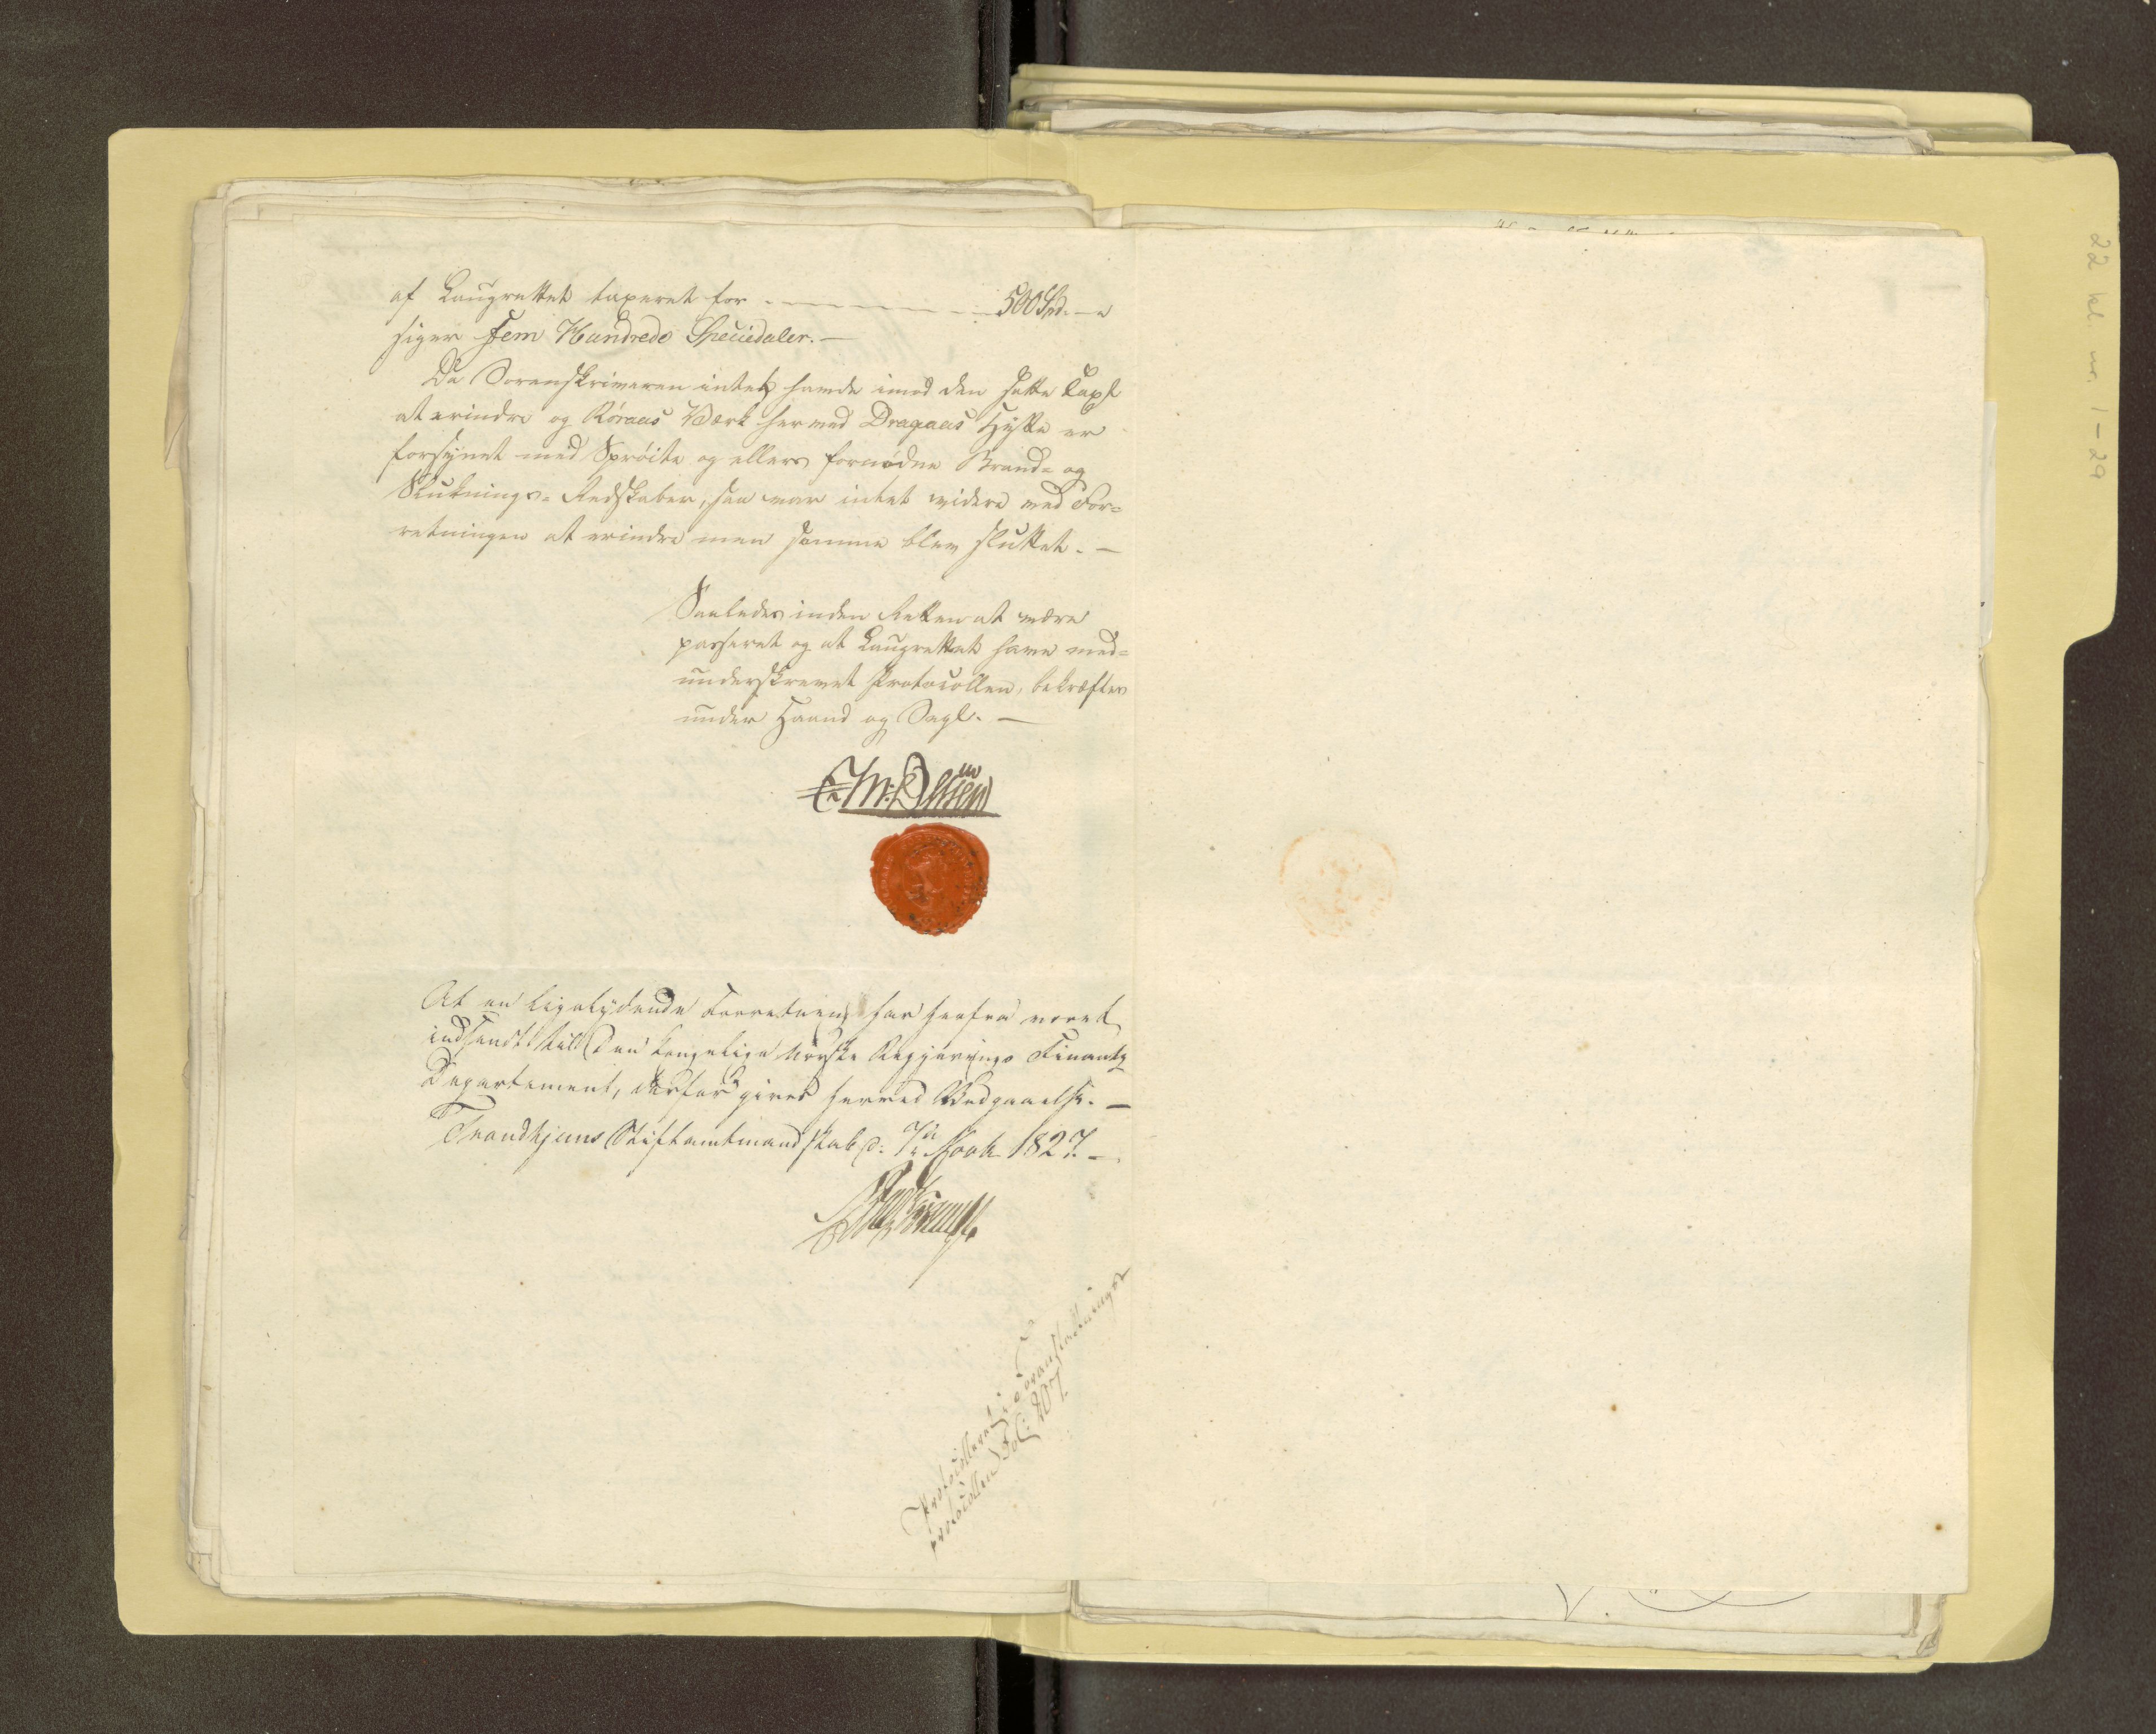 af Laugrettet taxeret for - - - - - - 500 Spd. - "
siger Fem Hundrede Speciedaler. -
Da Sorenskriveren intet havde imod den satte Taxt
at erindre og Röraas Værk hermed Dragaas Hytte er
forsynet med Spröite og ellers fornødne Brand- og
Sluknings-Redskaber, saa var intet videre ved For-
retningen at erindre men samme blev sluttet. -
Saaledes inden Retten at være
passeret og at Laugrettet have med-
underskrevet Protocollen, bekræftes
under Haand og Segl. -
At en ligelydende Forretning har herfra været
indsendt till Den kongelige Norske Regjerings Finants
Departement, derfor gives herved Vedgaaelse. -
Trondhjems Stiftamtmandskab d: 1827. -
Protocolleret i Foranstaltnings
protocollen Fol: 207.
22 kl. nr. 1-29